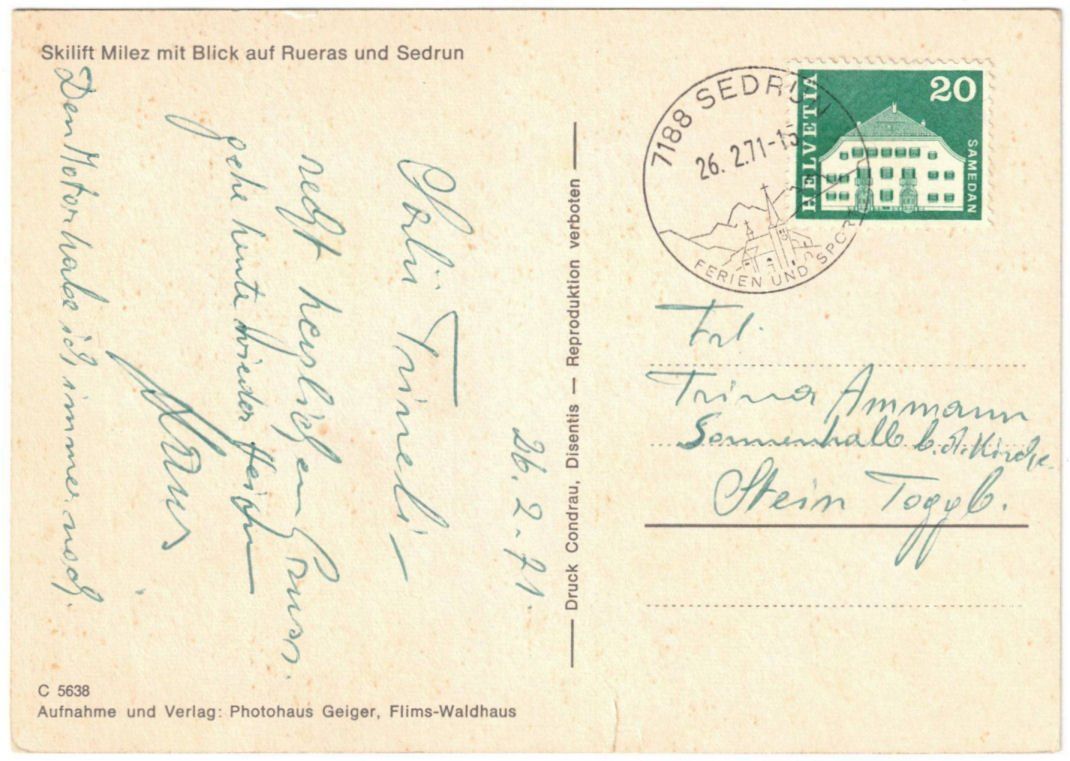 Skilift Milez mit Blick auf Rueras und Sedrun
26.2.71.
Salü Trineli
recht herzlichen Gruss.
gehe heute wieder heim
Hans
Den Motor habe ich immer noch.
C 5638
Aufnahme und Verlag: Photohaus Geiger, Flims-Waldhaus
Druck Condrau, Disentis — Reproduktion verboten
7188 SEDRUN
26.2.71-15
FERIEN UND SPORT
HELVETIA
20
SAMEDAN
Frl.
Trina Ammann
Sonnenhalb b.d. Kirche
Stein Toggb.